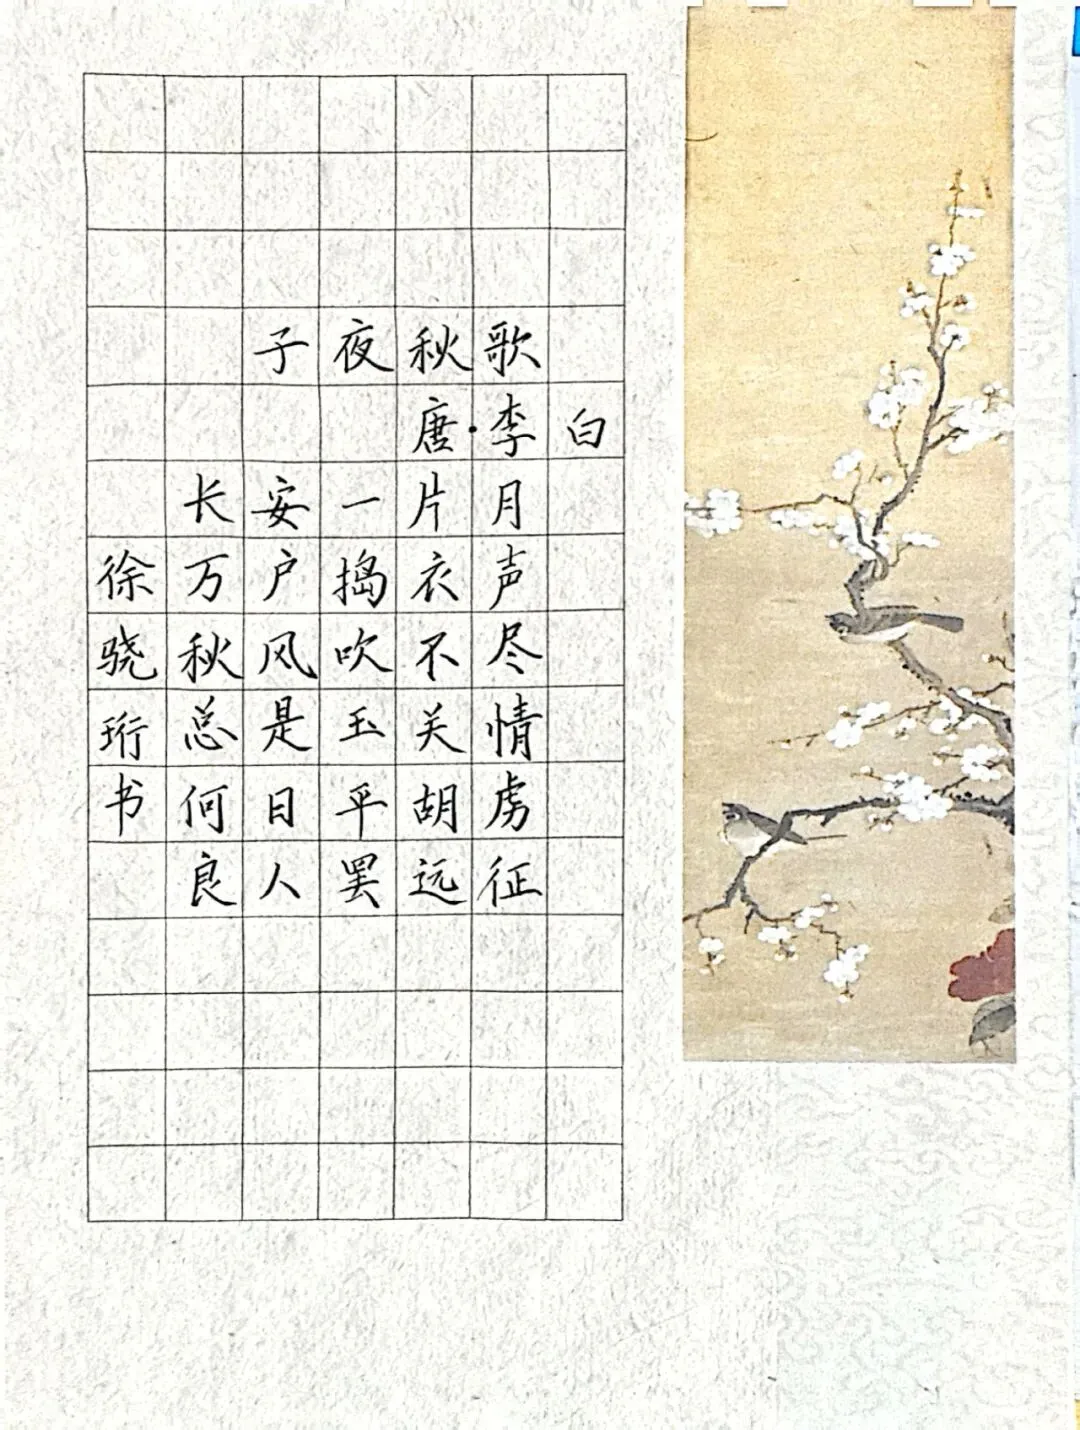 子夜秋歌
唐·李白
长安一片月
万户捣衣声
秋风吹不尽
总是玉关情
何日平胡虏
良人罢远征
徐骁珩书